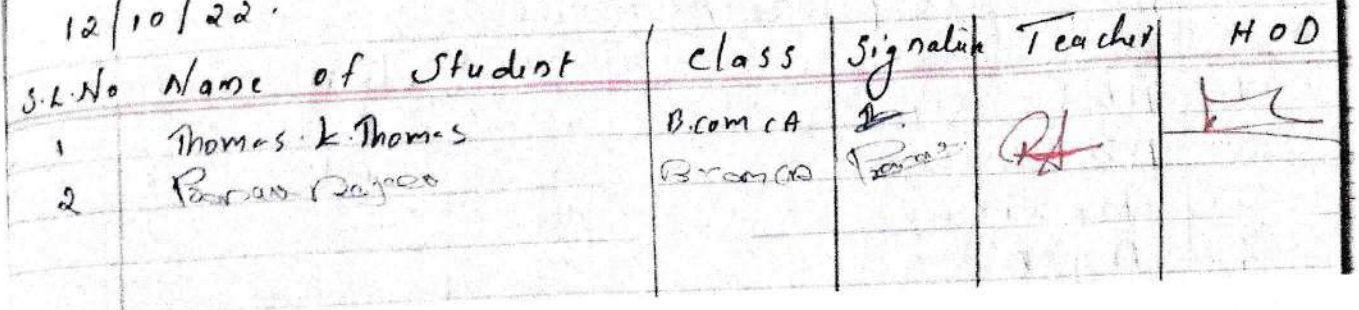 12/10/22.
S.L.No Name of Student Class Signature Teacher HOD
1 Thomas K. Thomas B.com CA
2 B.com CA